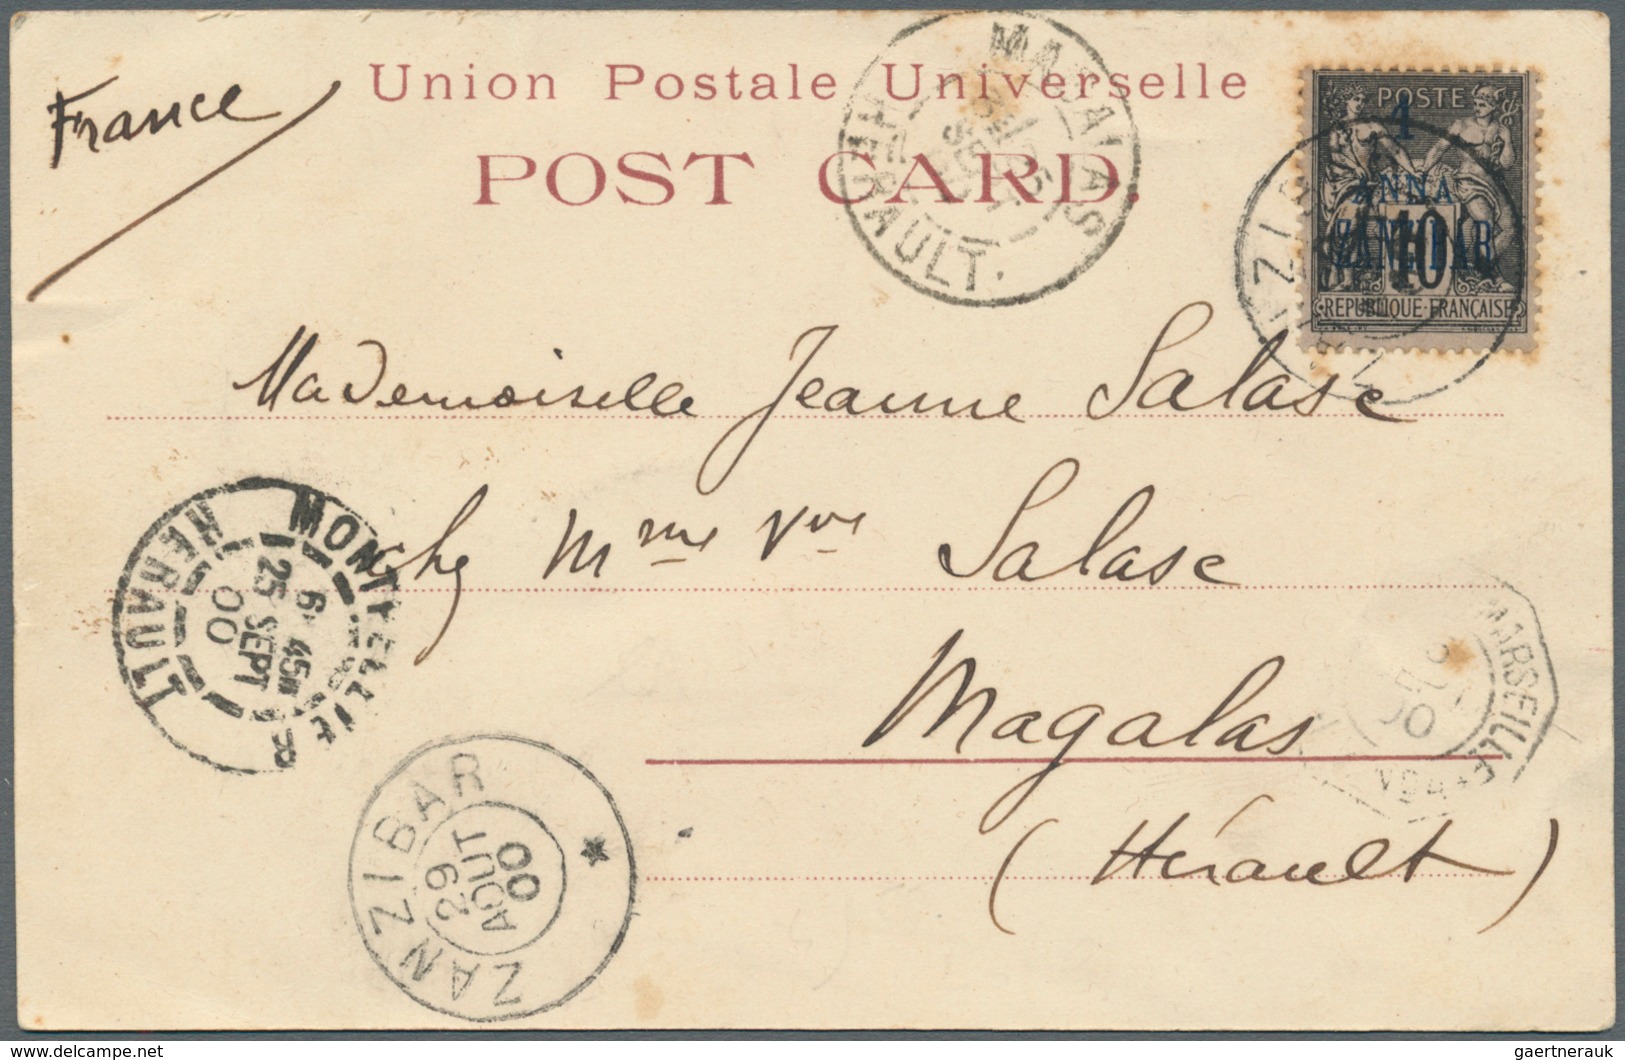 France
Union Postale Universelle
POST CARD.
MAGALAS
HERAULT.
POSTE
1
ANNA
ZANZIBAR
10
REPUBLIQUE FRANÇAISE
ZANZIBAR
Mademoiselle Jeanne Salasc
chez Mme Vve Salasc
Magalas
(Hérault)
MONTPELLIER
HERAULT
6 45
25 SEPT
00
ZANZIBAR
29
AOUT
00
MARSEILLE
00
delcampe.net
gaertnerauk